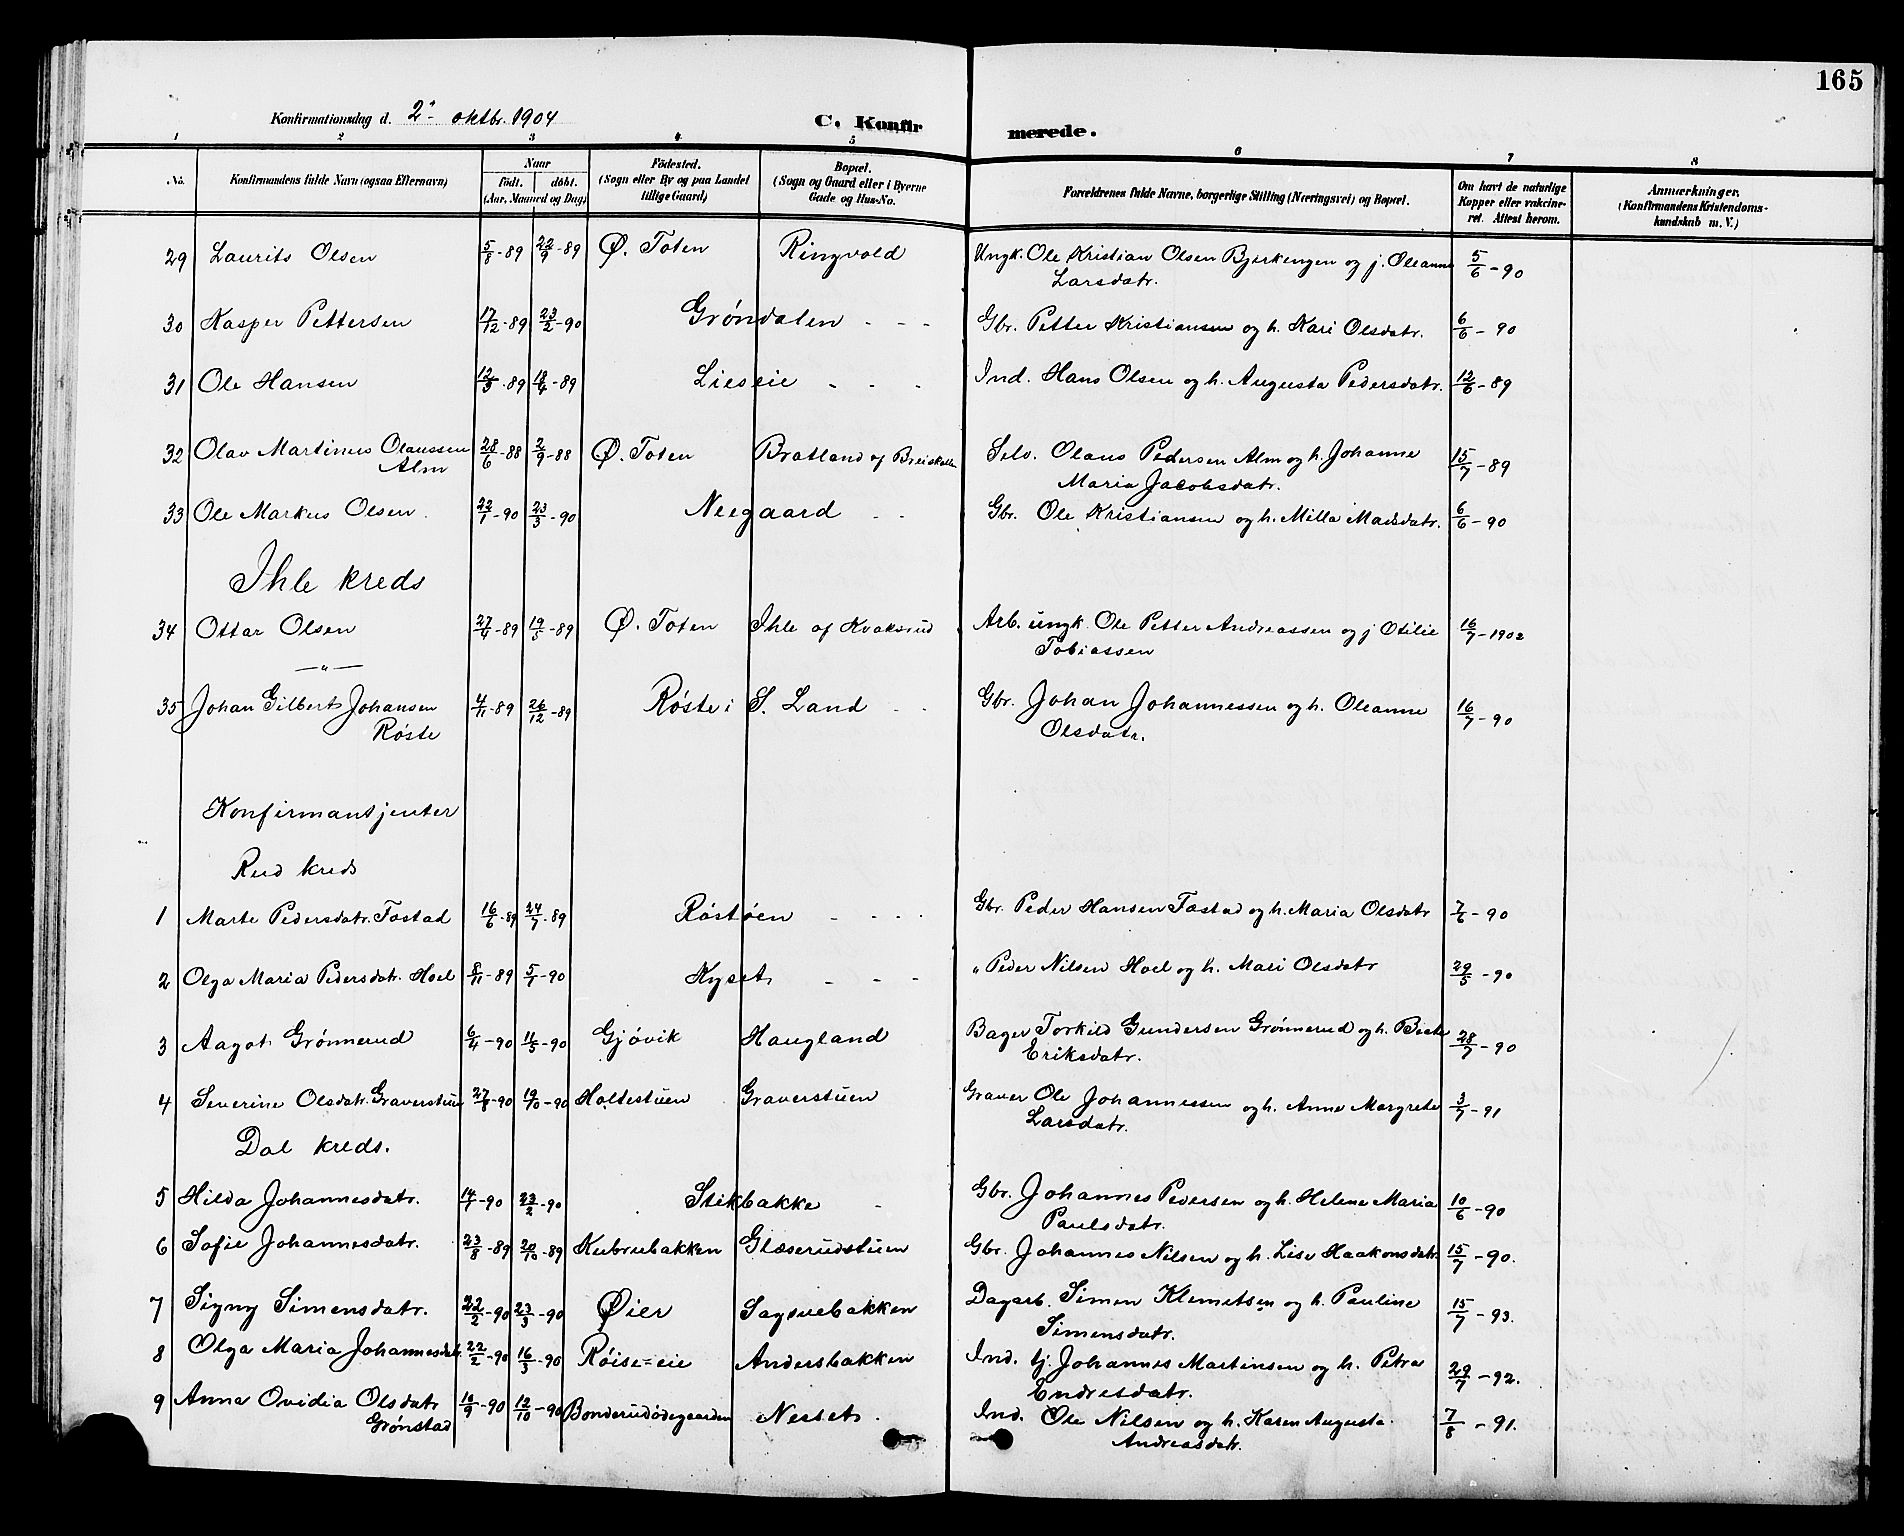 165
Konfirmationsdag d. 2den oktbr. 1904
C. Konfirmerede.
1 2 3 4 5 6 7 8
No. Konfirmandens fulde Navn (ogsaa Efternavn) Naar født. døbt. (Aar, Maaned og Dag) Födested. (Sogn eller By og paa Landet tillige Gaard) Bopæl. (Sogn og Gaard eller i Byerne Gade og Hus-No. Forældrenes fulde Navne, borgerlige Stilling (Næringsvei) og Bopæl. Om havt de naturlige Kopper eller vakcineret. Attest herom. Anmærkninger. (Konfirmandens Kristendomskundskab m. V.)
29 Laurits Olsen 5/8-89 22/9-89 Ø. Toten Ringvold Ungk. Ole Kristian Olsen Bjerkengen og j. Oleanne 5/6-90
Larsdatr.
30 Kasper Pettersen 17/12-89 23/2-90 Grøndalen - - - Gbr. Petter Kristiansen og h. Kari Olsdatr. 6/6-90
31 Ole Hansen 12/3-89 18/4-89 Lieseie - - - Ind. Hans Olsen og h. Augusta Pedersdatr. 12/6-89
32 Olav Martinus Olaussen 28/6-88 2/9-88 Ø. Toten Bratland af Breiskallen Selv. Olaus Pedersen Alm og h. Johanne 15/7-89
Alm Maria Jacobsdatr.
33 Ole Markus Olsen. 22/1-90 23/3-90 Neegaard - - Gbr. Ole Kristiansen og h. Milla Madsdatr. 6/6-90
Ihle kreds
34 Ottar Olsen 27/4-89 19/5-89 Ø. Toten Ihle af Kvaksrud Arb. ungk. Ole Petter Andreassen og j Otilie 16/7-1902
Tobiassen
—"—
35 Johan Gilbert Johansen 4/11-89 26/12-89 Røste i S. Land - - Gbr. Johan Johannessen og h. Oleanne 16/7-90
Røste Olsdatr.
Konfirmantjenter
Rud kreds
1 Marte Pedersdatr. Tostad 16/6-89 24/7-89 Røstøen - - - - Gbr. Peder Hansen Tostad og h. Maria Olsdatr 7/6-90
2 Olga Maria Pedersdatr. Hoel 8/11-89 5/1-90 Kyset - - - " Peder Nilsen Hoel og h. Mari Olsdatr 29/5-90
3 Aagot Grønnerud 6/4-90 11/5-90 Gjøvik Haugland Bager Torkild Gundersen Grønnerud og h. Beate 28/7-90
Eriksdatr.
4 Severine Olsdatr. Graverstuen 27/8-90 19/10-90 Holtestuen Graverstuen Graver Ole Johannessen og h. Anne Margrete 3/7-91
Larsdatr.
Dal kreds.
5 Hilda Johannesdatr. 14/1-90 23/2-90 Stikbakke - Gbr. Johannes Pedersen og h. Helene Maria 10/6-90
Paulsdatr.
6 Sofie Johannesdatr. 23/8-89 20/10-89 Kubruebakken Glæserudstuen Gbr. Johannes Nilsen og h. Lise Haakonsdatr. 15/7-90.
7 Signy Simensdatr. 22/2-90 23/3-90 Øier Sagvebakken Dagarb. Simen Klemetsen og h. Pauline 15/7-93.
Simensdatr.
8 Olga Maria Johannesdatr. 22/2-90 16/3-90 Røise=eie Andersbakken Ind. tj. Johannes Martinsen og h. Petra 29/7-92.
Endresdatr.
9 Anna Ovidia Olsdatr 14/9-90 12/10-90 Bonderudødegaarden Nesset. Ind. Ole Nilsen og h. Karen Augusta 7/8-91.
Grønstad Andreasdatr.